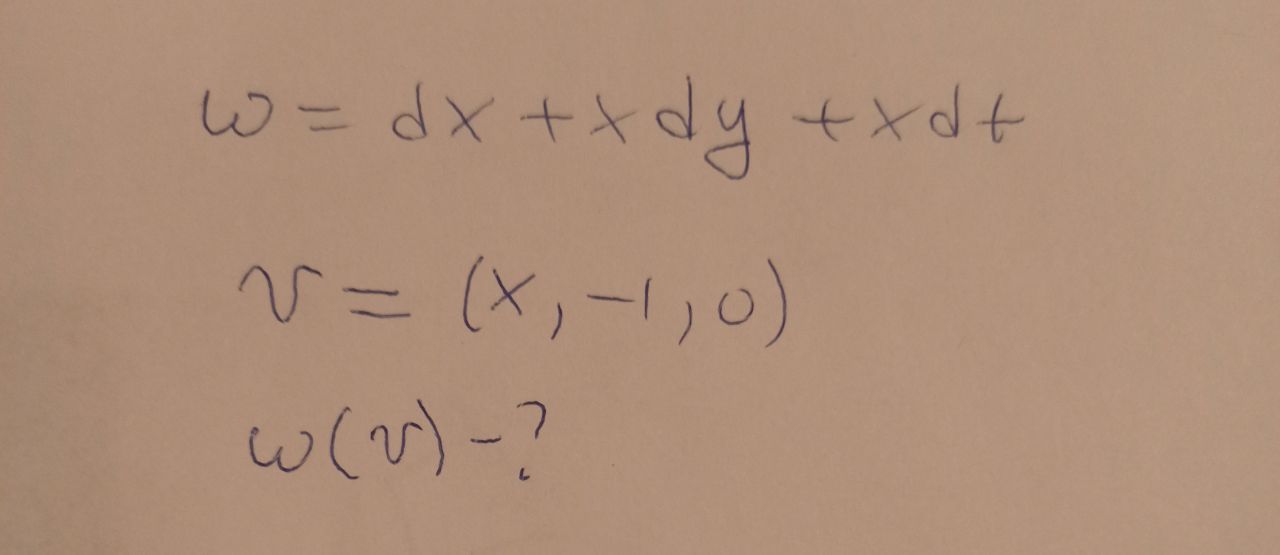 ω = dx + x dy + x dt
v = (x, -1, 0)
ω(v) - ?